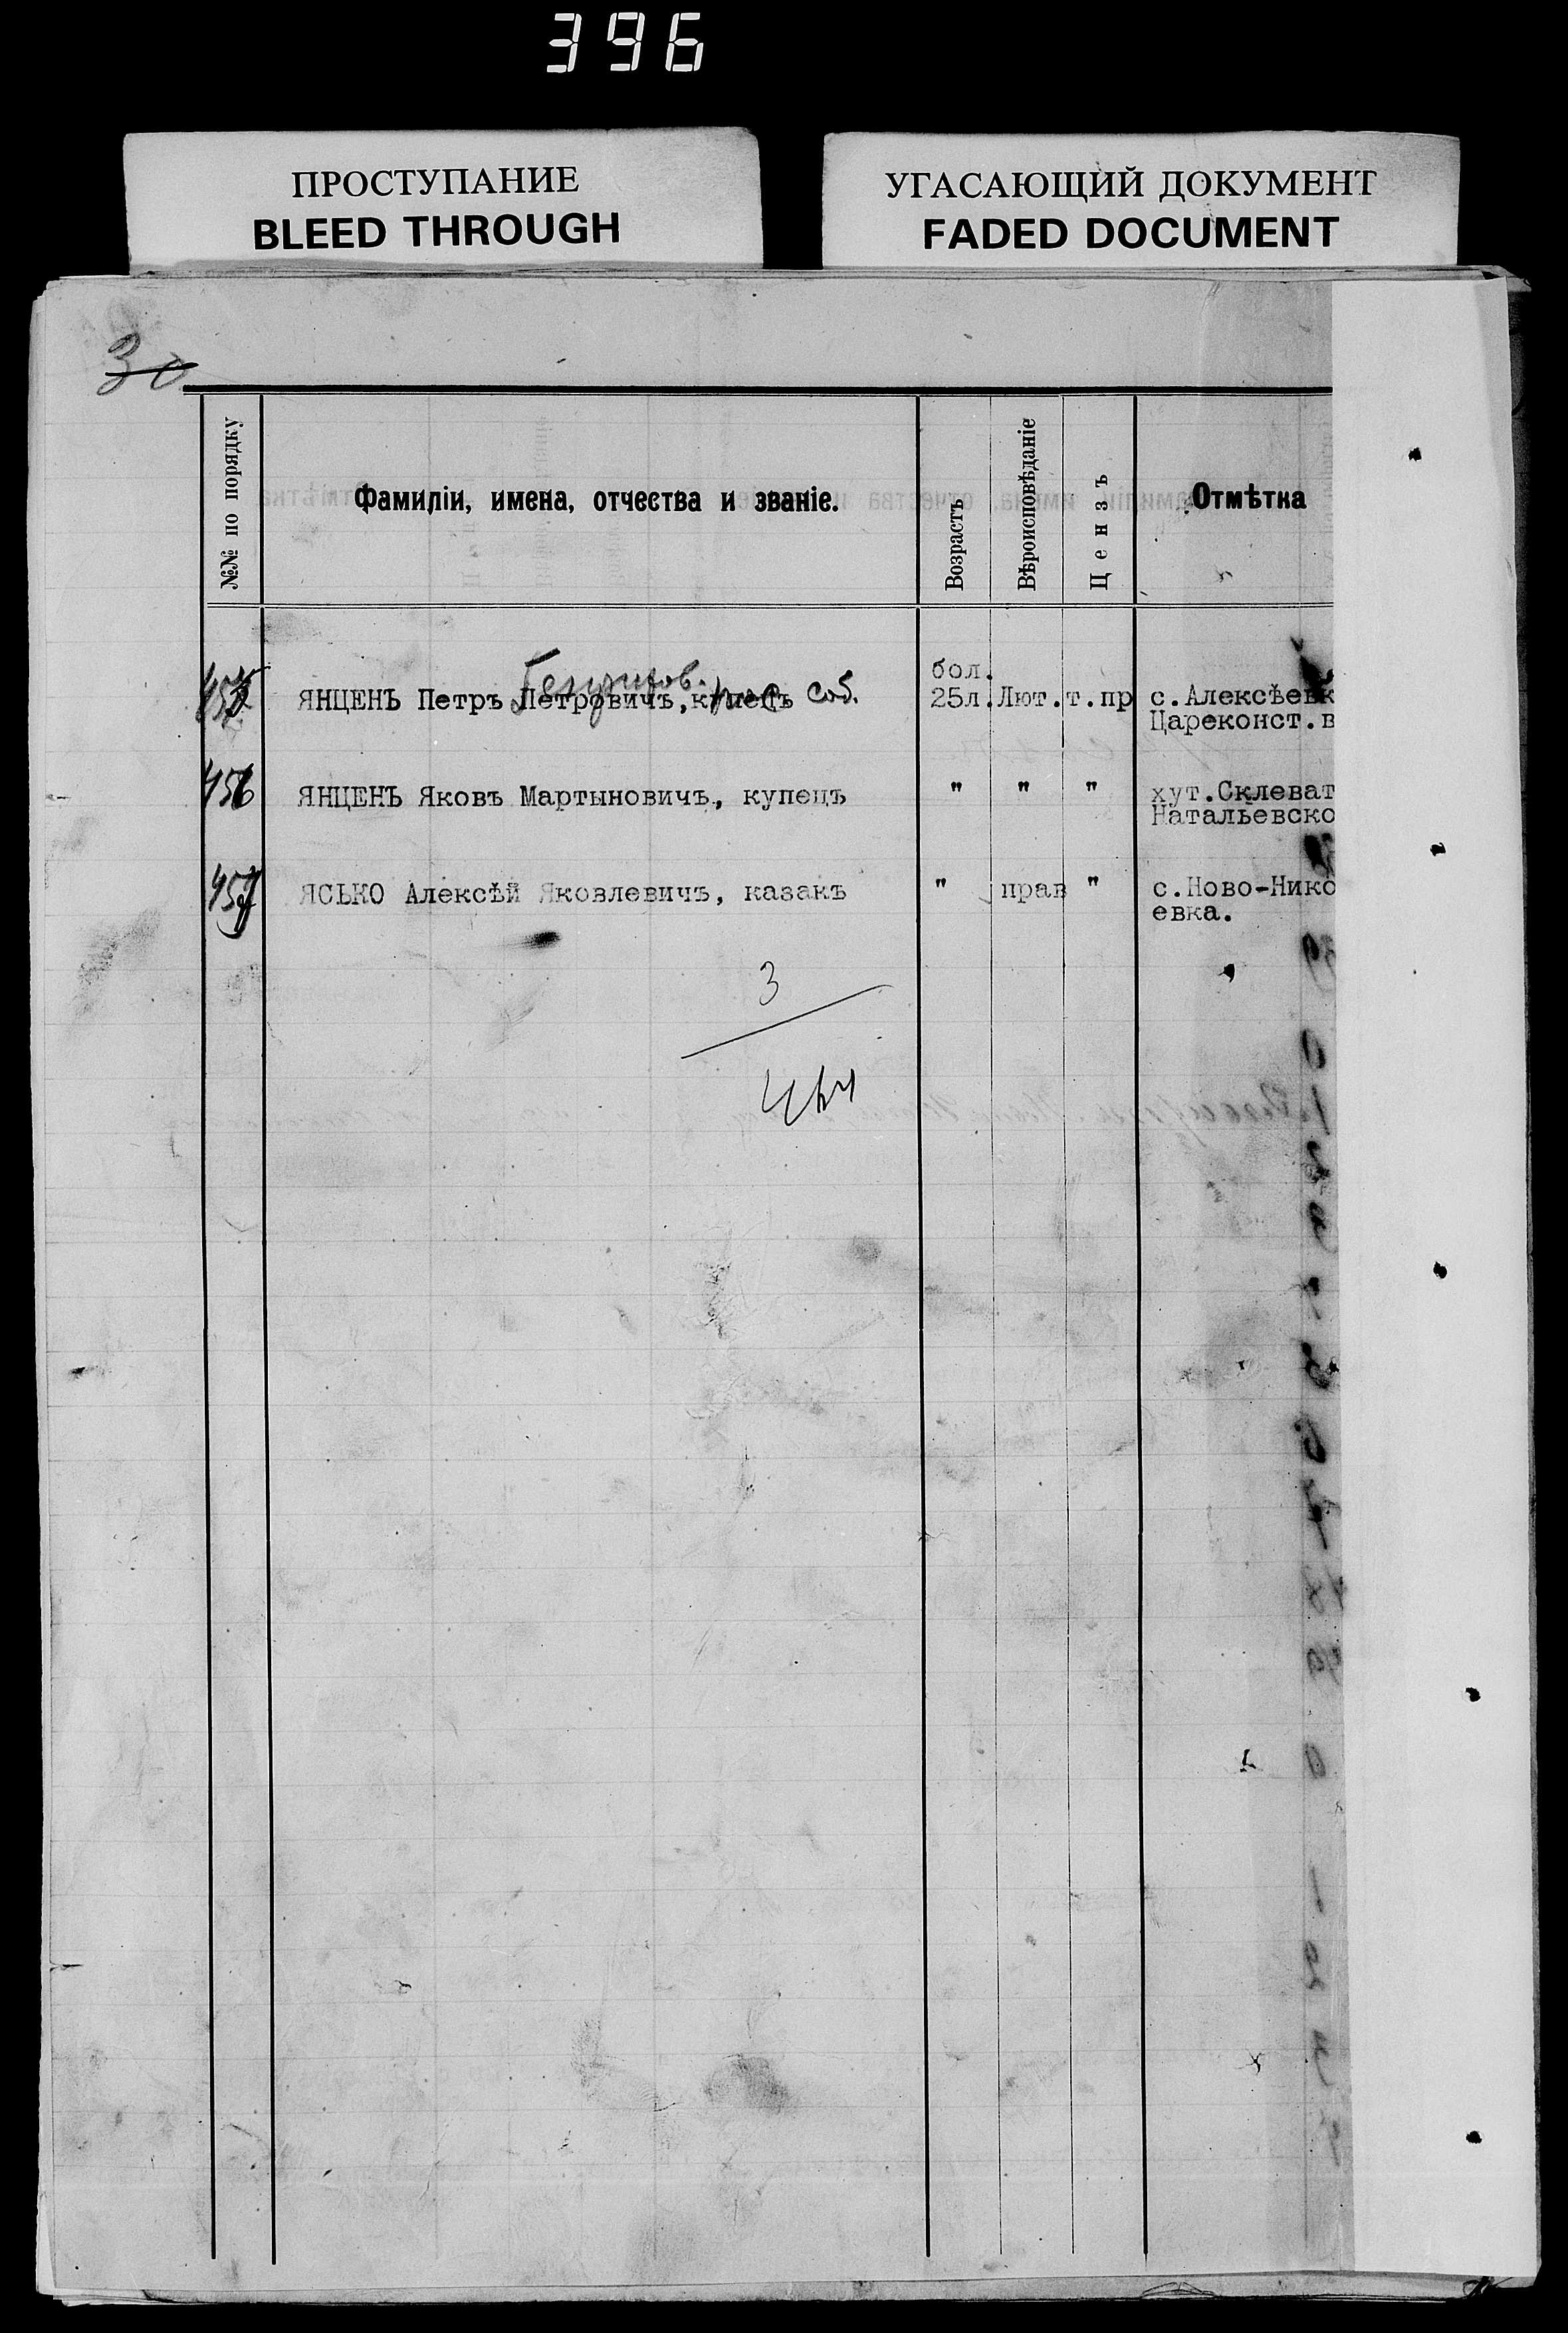 396
ПРОСТУПАНИЕ
BLEED THROUGH
УГАСАЮЩИЙ ДОКУМЕНТ
FADED DOCUMENT
30
№№ по порядку
Фамиліи, имена, отчества и званіе.
Возрастъ
Вѣроисповѣданіе
Цензъ
Отмѣтка
ЯНЦЕНЪ Петръ Петровичъ, купецъ соб. бол. 25л. Лют. т.пр с.Алексѣевк
Цареконст.в
456 ЯНЦЕНЪ Яковъ Мартыновичъ, купецъ " " " хут.Склеват
Натальевско
457 ЯСЬКО Алексѣй Яковлевичъ, казакъ " прав " с.Ново-Нико
евка.
3